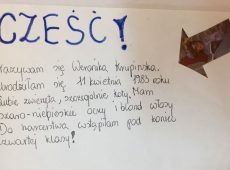 CZEŚĆ!
Nazywam się Weronika Krupińska.
Urodziłam się 11 kwietnia 1983 roku
Lubię zwierzęta, szczególnie koty. Mam
szaro-niebieskie oczy i blond włosy
Do harcerstwa wstąpiłam pod koniec
czwartej klasy!